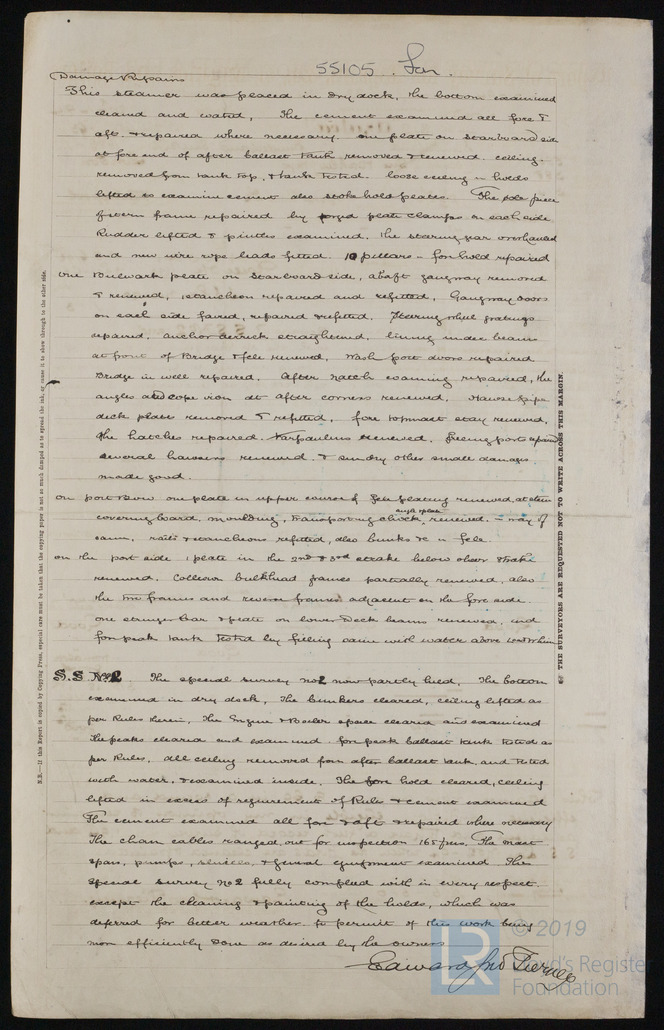 55105
Damage Repairs
This steamer was placed in dry dock, the bottom examined
cleaned and coated, The cement examined all fore &
aft & repaired where necessary. one plate on starboard side
at fore end of after ballast tank removed & renewed. ceiling
removed from tank top, & tank tested. loose ceiling in holds
lifted to examine cement also stokehold plates. The sole piece
of stern frame repaired by forged plate clamps on each side
Rudder lifted & pintles examined, the steering gear overhauled
and new wire rope leads fitted. 10 pillars in fore hold repaired
One bulwark plate on starboard side, abaft gangway removed
& renewed, 1 stancheon repaired and refitted, Gangway doors
on each side faired, repaired & refitted. Steering wheel gratings
repaired. anchor derrick straightened. lining under beams
at front of Bridge & fcle renewed, Wash port doors repaired
Bridge in well repaired. After hatch coaming repaired, the
angles and cope iron at after corners renewed. Hawse pipe
deck plate removed & refitted, fore topmast stay renewed,
The hatches repaired. Tarpaulins renewed. freeing ports repaired
several hawsers renewed & sundry other small damages
made good.
On port Bow one plate in upper course of fcle plating renewed, at stem
covering board, moulding, transporting chock, renewed. in way of
same. rails & stancheons refitted, also bunks &c in fcle.
On the port side 1 plate in the 2nd & 3rd strake below sheer strake
renewed. Collision bulkhead frames partially renewed, also
the frames and reverse frames adjacent on the fore side
one stringer bar & plate on lower deck beams renewed, and
forepeak tank tested by filling same with water above
S.S No2 The special survey no2 now partly held, The bottom
examined in dry dock, The bunkers cleared, ceiling lifted as
per Rules herein, The Engine & Boiler space cleared and examined
The peaks cleared and examined. fore peak ballast tank tested as
per Rules. All ceiling removed from after ballast tank and tested
with water, & examined inside. The fore hold cleared, ceiling
lifted in excess of requirement of Rules & cement examined
The cement examined all fore & aft & repaired where necessary
The chain cables ranged out for inspection 165 fms. The mast
spars, pumps, & general equipment examined The
special survey no 2 fully complied with in every respect
except the cleaning & painting of the holds, which was
deferred for better weather to permit of this work being
more efficiently done as desired by the owners
Edward Jno Tierney
N.B.—If this Report is copied by Copying Press, especial care must be taken that the copying paper is not so much damped as to spread the ink, or cause it to show through to the other side.
THE SURVEYORS ARE REQUESTED NOT TO WRITE ACROSS THIS MARGIN.
© 2019
LR Lloyd's Register
Foundation